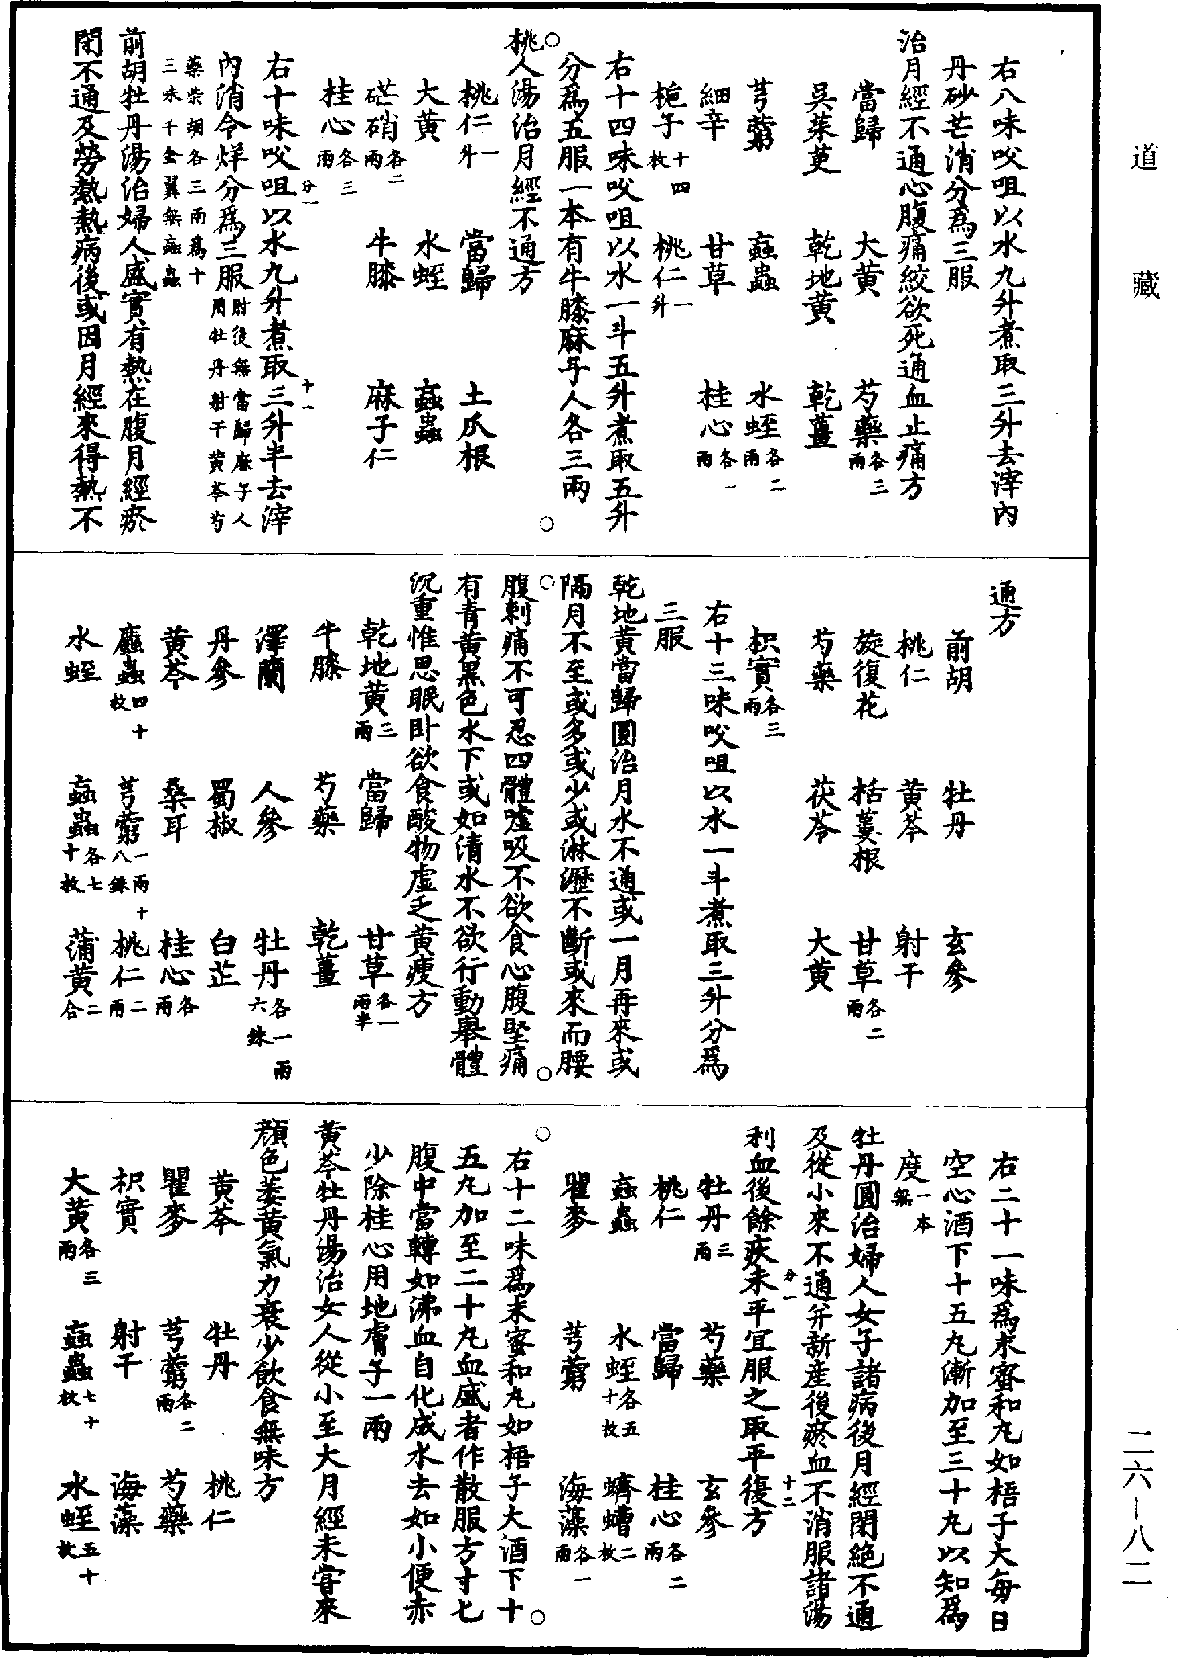 道藏
右八味㕮咀以水九升煮取三升去滓內
丹砂芒消分為三服
治月經不通心腹痛絞欲死通血止痛方
當歸 大黃 芍藥各三兩
吳茱萸 乾地黃 乾薑
芎藭 蝱蟲 水蛭各二兩
細辛 甘草 桂心各一兩
梔子十四枚 桃仁一升
右十四味㕮咀以水一斗五升煮取五升
分為五服一本有牛膝麻子人各三兩
桃人湯治月經不通方
桃仁一升 當歸 土瓜根
大黃 水蛭 蝱蟲
芒硝各二兩 牛膝 麻子仁
桂心各三兩
右十味㕮咀以水九升煮取三升半去滓
內消令烊分為三服肘後無當歸麻子人用牡丹射干黃芩芍
藥柴胡各三兩為十三味千金翼無蝱蟲
前胡牡丹湯治婦人盛實有熱在腹月經瘀
閉不通及勞熱熱病後或因月經來得熱不
通方
前胡 牡丹 玄參
桃仁 黃芩 射干
旋復花 栝蔞根 甘草各二兩
芍藥 茯苓 大黃
枳實各三兩
右十三味㕮咀以水一斗煮取三升分為
三服
乾地黃當歸圓治月水不通或一月再來或
隔月不至或多或少或淋瀝不斷或來而腰
腹刺痛不可忍四體噓吸不欲食心腹堅痛
有青黃黑色水下或如清水不欲行動舉體
沉重惟思眠臥欲食酸物虛乏黃瘦方
乾地黃三兩 當歸 甘草各一兩半
牛膝 芍藥 乾薑
澤蘭 人參 牡丹各一兩六銖
丹參 蜀椒 白芷
黃芩 桑耳 桂心各一兩
䗪蟲四十枚 芎藭一兩十八銖 桃仁二兩
水蛭 蝱蟲各七十枚 蒲黃二合
右二十一味為末蜜和丸如梧子大每日
空心酒下十五丸漸加至三十丸以知為
度一本無
牡丹圓治婦人女子諸病後月經閉絕不通
及從小來不通并新產後瘀血不消服諸湯
利血後餘疾未平宜服之取平復方
牡丹三兩 芍藥 玄參
桃仁 當歸 桂心各二兩
蝱蟲 水蛭各五十枚 蠐螬二枚
瞿麥 芎藭 海藻各一兩
右十二味為末蜜和丸如梧子大酒下十
五丸加至二十丸血盛者作散服方寸匕
腹中當轉如沸血自化成水去如小便赤
少除桂心用地膚子一兩
黃芩牡丹湯治女人從小至大月經未嘗來
顏色萎黃氣力衰少飲食無味方
黃芩 牡丹 桃仁
瞿麥 芎藭各二兩 芍藥
枳實 射干 海藻
大黃各三兩 蝱蟲七十枚 水蛭五十枚
二六—八二